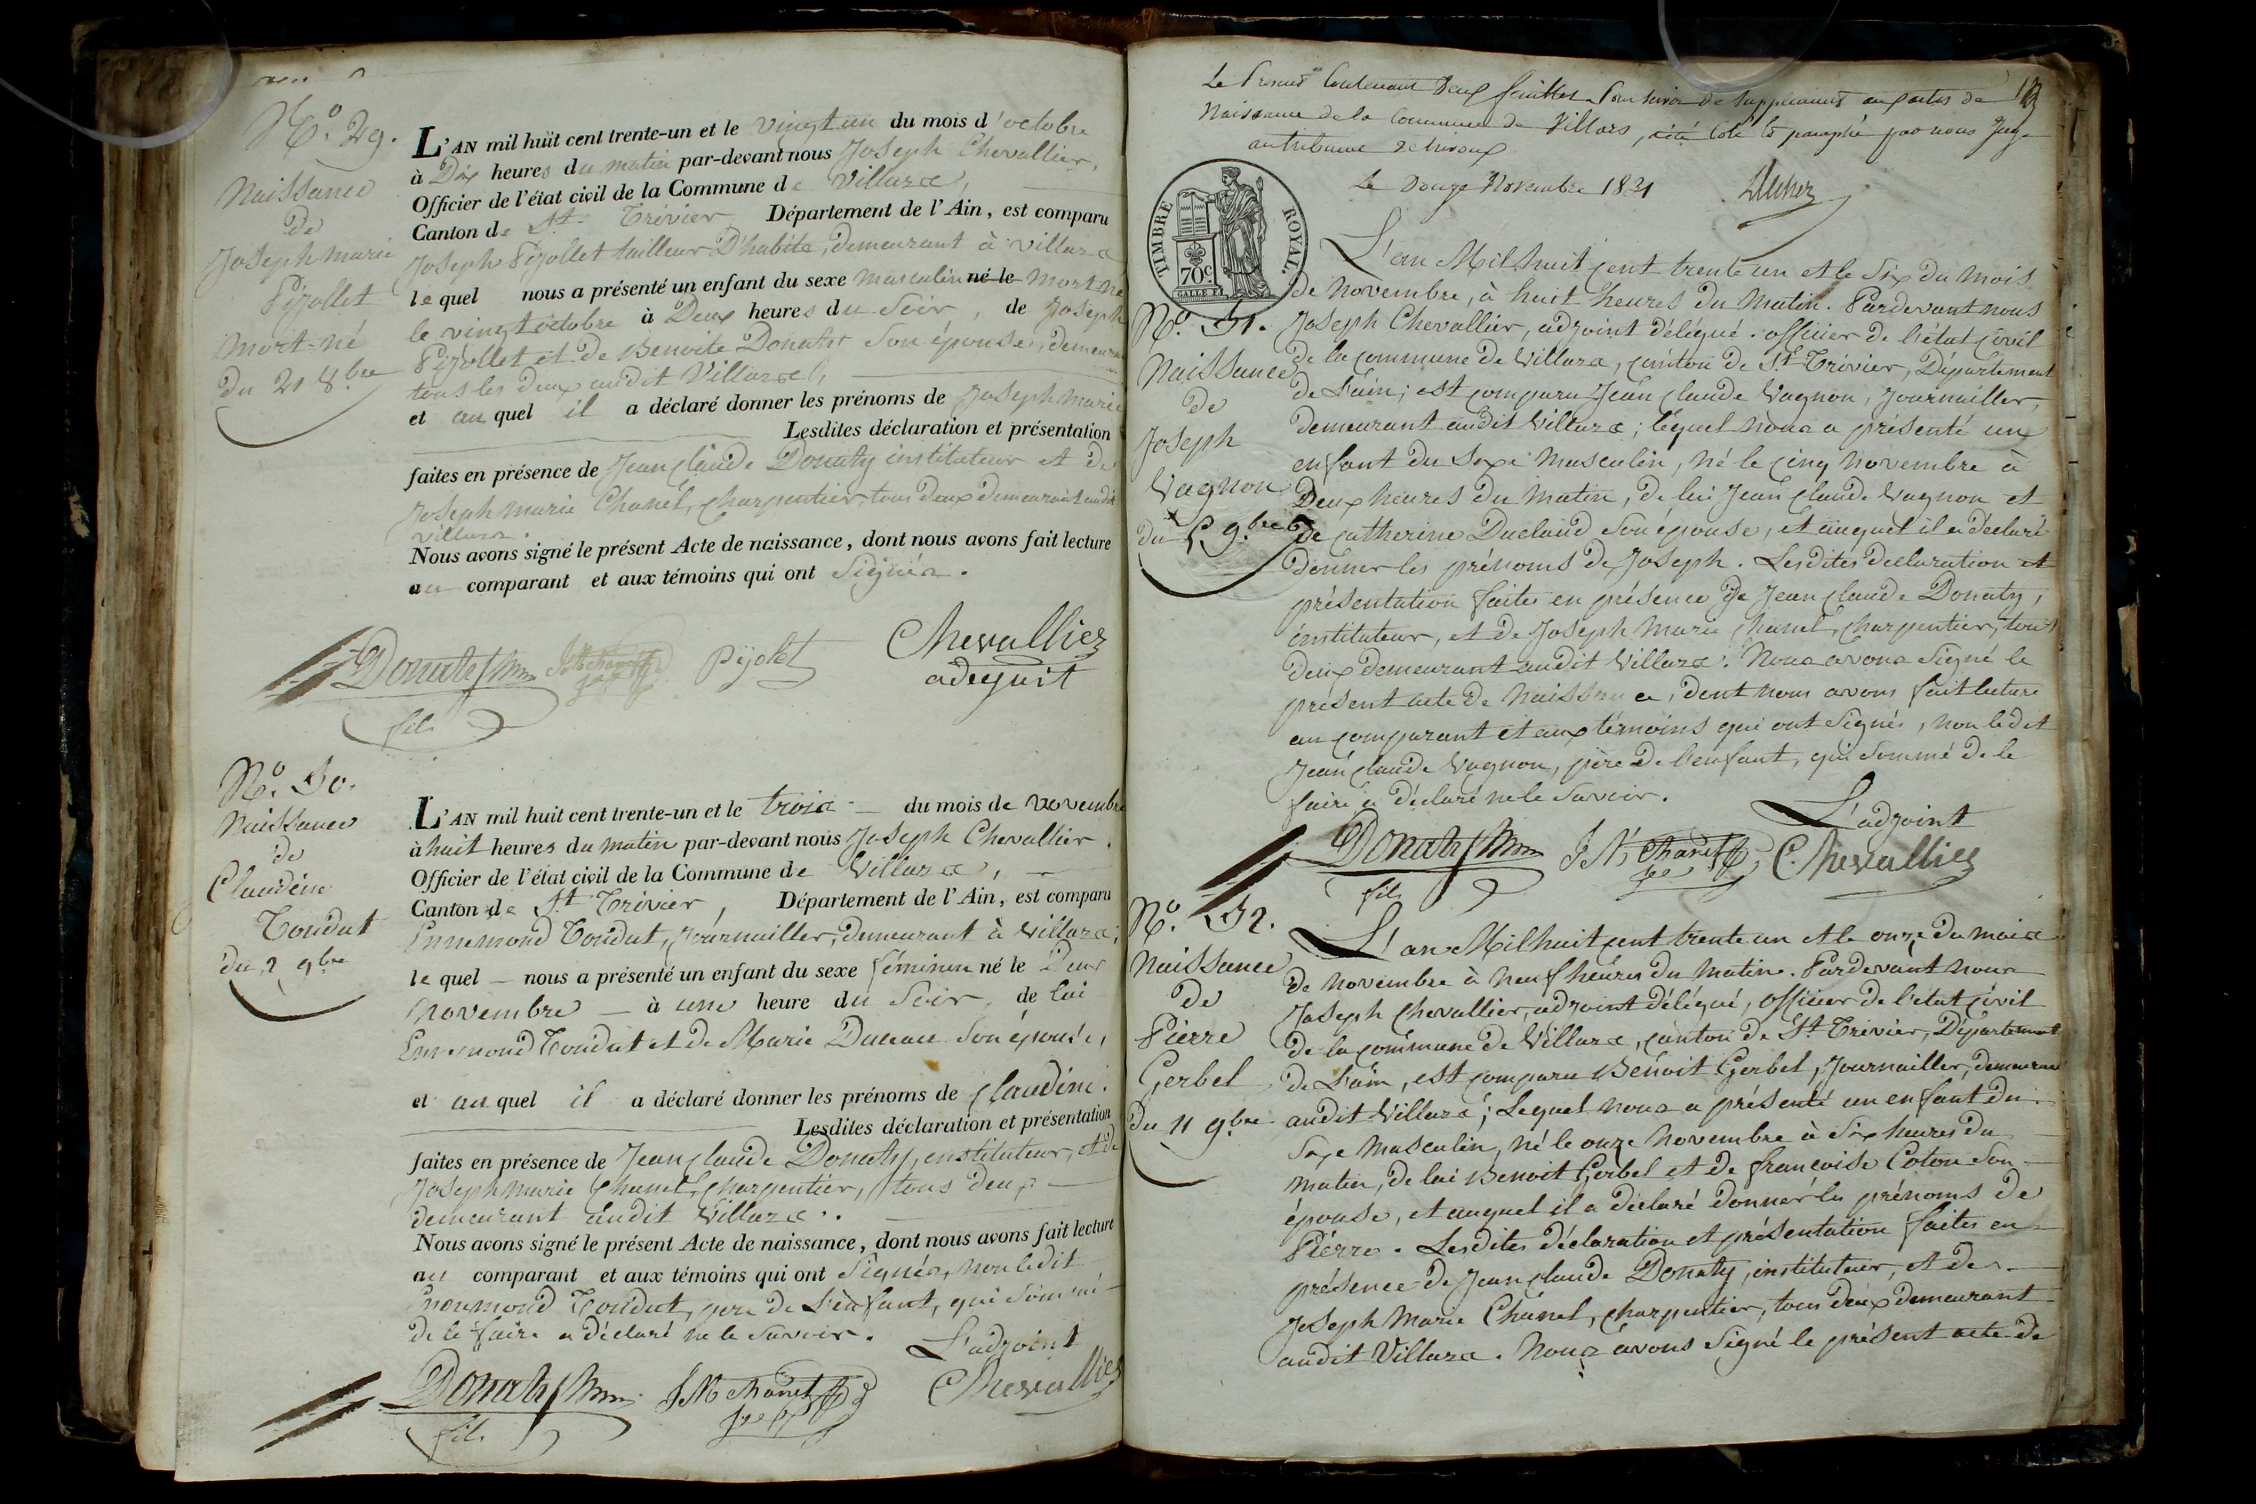 N.o 29.
Naissance
de
Joseph marie
Pijollet
mort-né
du 21 8.bre
L'AN mil huit cent trente-un et le vingt un du mois d'octobre
à Dix heures du matin par-devant nous Joseph Chevallier,
Officier de l'état civil de la Commune de Villars,
Canton de St. Trivier Département de l'Ain, est comparu
Joseph Pijollet tailleur D'habits, demeurant à Villars
lequel nous a présenté un enfant du sexe masculin né le mort né
le vingt octobre à Deux heures du Soir, de Joseph
Pijollet et de Benoite Donat Son épouse, demeurant
tous les deux audit Villars,
et auquel il a déclaré donner les prénoms de Joseph marie
Lesdites déclaration et présentation
faites en présence de Jean Claude Donaty instituteur et de
Joseph marie Chanel, charpentier, tous deux demeurant audit
Villars.
Nous avons signé le présent Acte de naissance, dont nous avons fait lecture
au comparant et aux témoins qui ont Signés.
Donaty
fils
J M Chanel
Pijolet
Chevallier
N.o 30.
Naissance
de
Claudine
Condut
du 2 9bre
L'AN mil huit cent trente-un et le trois du mois de novembre
à huit heures du matin par-devant nous Joseph Chevallier,
Officier de l'état civil de la Commune de Villars,
Canton de St. Trivier, Département de l'Ain, est comparu
Ennemond Condut, Journailler, demeurant à Villars;
lequel nous a présenté un enfant du sexe féminin né le Deux
novembre à une heure du Soir, de lui
Ennemond Condut et de Marie Son épouse,
et auquel il a déclaré donner les prénoms de Claudine.
Lesdites déclaration et présentation
faites en présence de Jean Claude Donaty, instituteur, et de
Joseph marie Chanel, charpentier, tous deux
demeurant audit Villars.
Nous avons signé le présent Acte de naissance, dont nous avons fait lecture
au comparant et aux témoins qui ont Signés, non ledit
Ennemond Condut, père de l'enfant, qui Sommé
de le faire a déclaré ne le Savoir.
L'adjoint
Donaty
fils
J M Chanel
Chevallier
Le présent Contenant Deux feuillets Pour Servir de Supplément aux actes de
Naissance de la Commune de Villars, a été Coté et paraphé par nous Juge
au tribunal de trévoux
Le Douze Novembre 1831
TIMBRE ROYAL.
70c.
N.o 31.
Naissance
de
Joseph
Vagnon
du 5 9.bre
L'an Mil huit cent trente un et le Six du mois
de Novembre, à huit heures du Matin. Pardevant nous
Joseph Chevallier, adjoint délégué. officier de l'état civil
de la commune de Villars, canton de St. Trivier, Département
de l'ain; est comparu Jean Claude Vagnon, Journailler,
demeurant audit Villars; lequel nous a présenté un
enfant du Sexe Masculin, né le cinq novembre à
Deux heures du Matin, de lui Jean Claude Vagnon et
de Catherine Duclaud Son épouse, et auquel il a déclaré
donner les prénoms de Joseph. Lesdites declaration et
présentation faites en présence de Jean Claude Donaty,
instituteur, et de Joseph Marie Chanel, charpentier, tous
deux demeurant audit Villars. Nous avons Signé le
présent acte de Naissance, dont nous avons fait lecture
au comparant et aux témoins qui ont Signés, non ledit
Jean Claude Vagnon, père de l'enfant, qui Sommé de le
faire a déclaré ne le Savoir.
L'adjoint
Donaty
fils
J M Chanel
Chevallier
N.o 32.
Naissance
de
Pierre
Gerbel
du 11 9bre
L'an Mil huit cent trente un et le onze du mois
de novembre à neuf heures du matin. Pardevant nous
Joseph Chevallier, adjoint délégué, officier de l'état civil
de la commune de Villars, canton de St. Trivier, Département
de l'ain, est comparu Benoit Gerbel, Journailler, demeurant
audit Villars; Lequel nous a présenté un enfant du
Sexe Masculin, né le onze Novembre à Six heures du
matin, de lui Benoit Gerbel et de françoise Coton Son
épouse, et auquel il a déclaré donner les prénoms de
Pierre. Lesdites déclaration et présentation faites en
présence de Jean Claude Donaty, instituteur, et de
Joseph Marie Chanel, charpentier, tous deux demeurant
audit Villars. Nous avons Signé le présent acte de